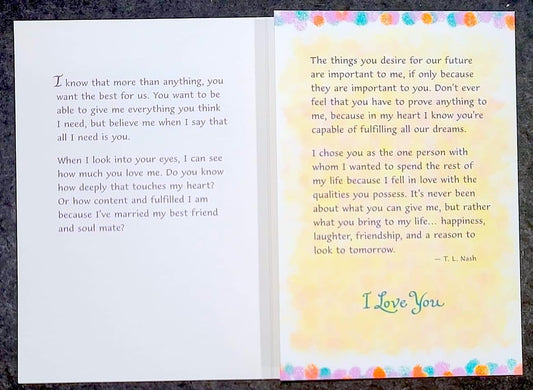 I know that more than anything, you
want the best for us. You want to be
able to give me everything you think
I need, but believe me when I say that
all I need is you.
When I look into your eyes, I can see
how much you love me. Do you know
how deeply that touches my heart?
Or how content and fulfilled I am
because I've married my best friend
and soul mate?
The things you desire for our future
are important to me, if only because
they are important to you. Don't ever
feel that you have to prove anything to
me, because in my heart I know you're
capable of fulfilling all our dreams.
I chose you as the one person with
whom I wanted to spend the rest of
my life because I fell in love with the
qualities you possess. It's never been
about what you can give me, but rather
what you bring to my life... happiness,
laughter, friendship, and a reason to
look to tomorrow.
— T. L. Nash
I Love You